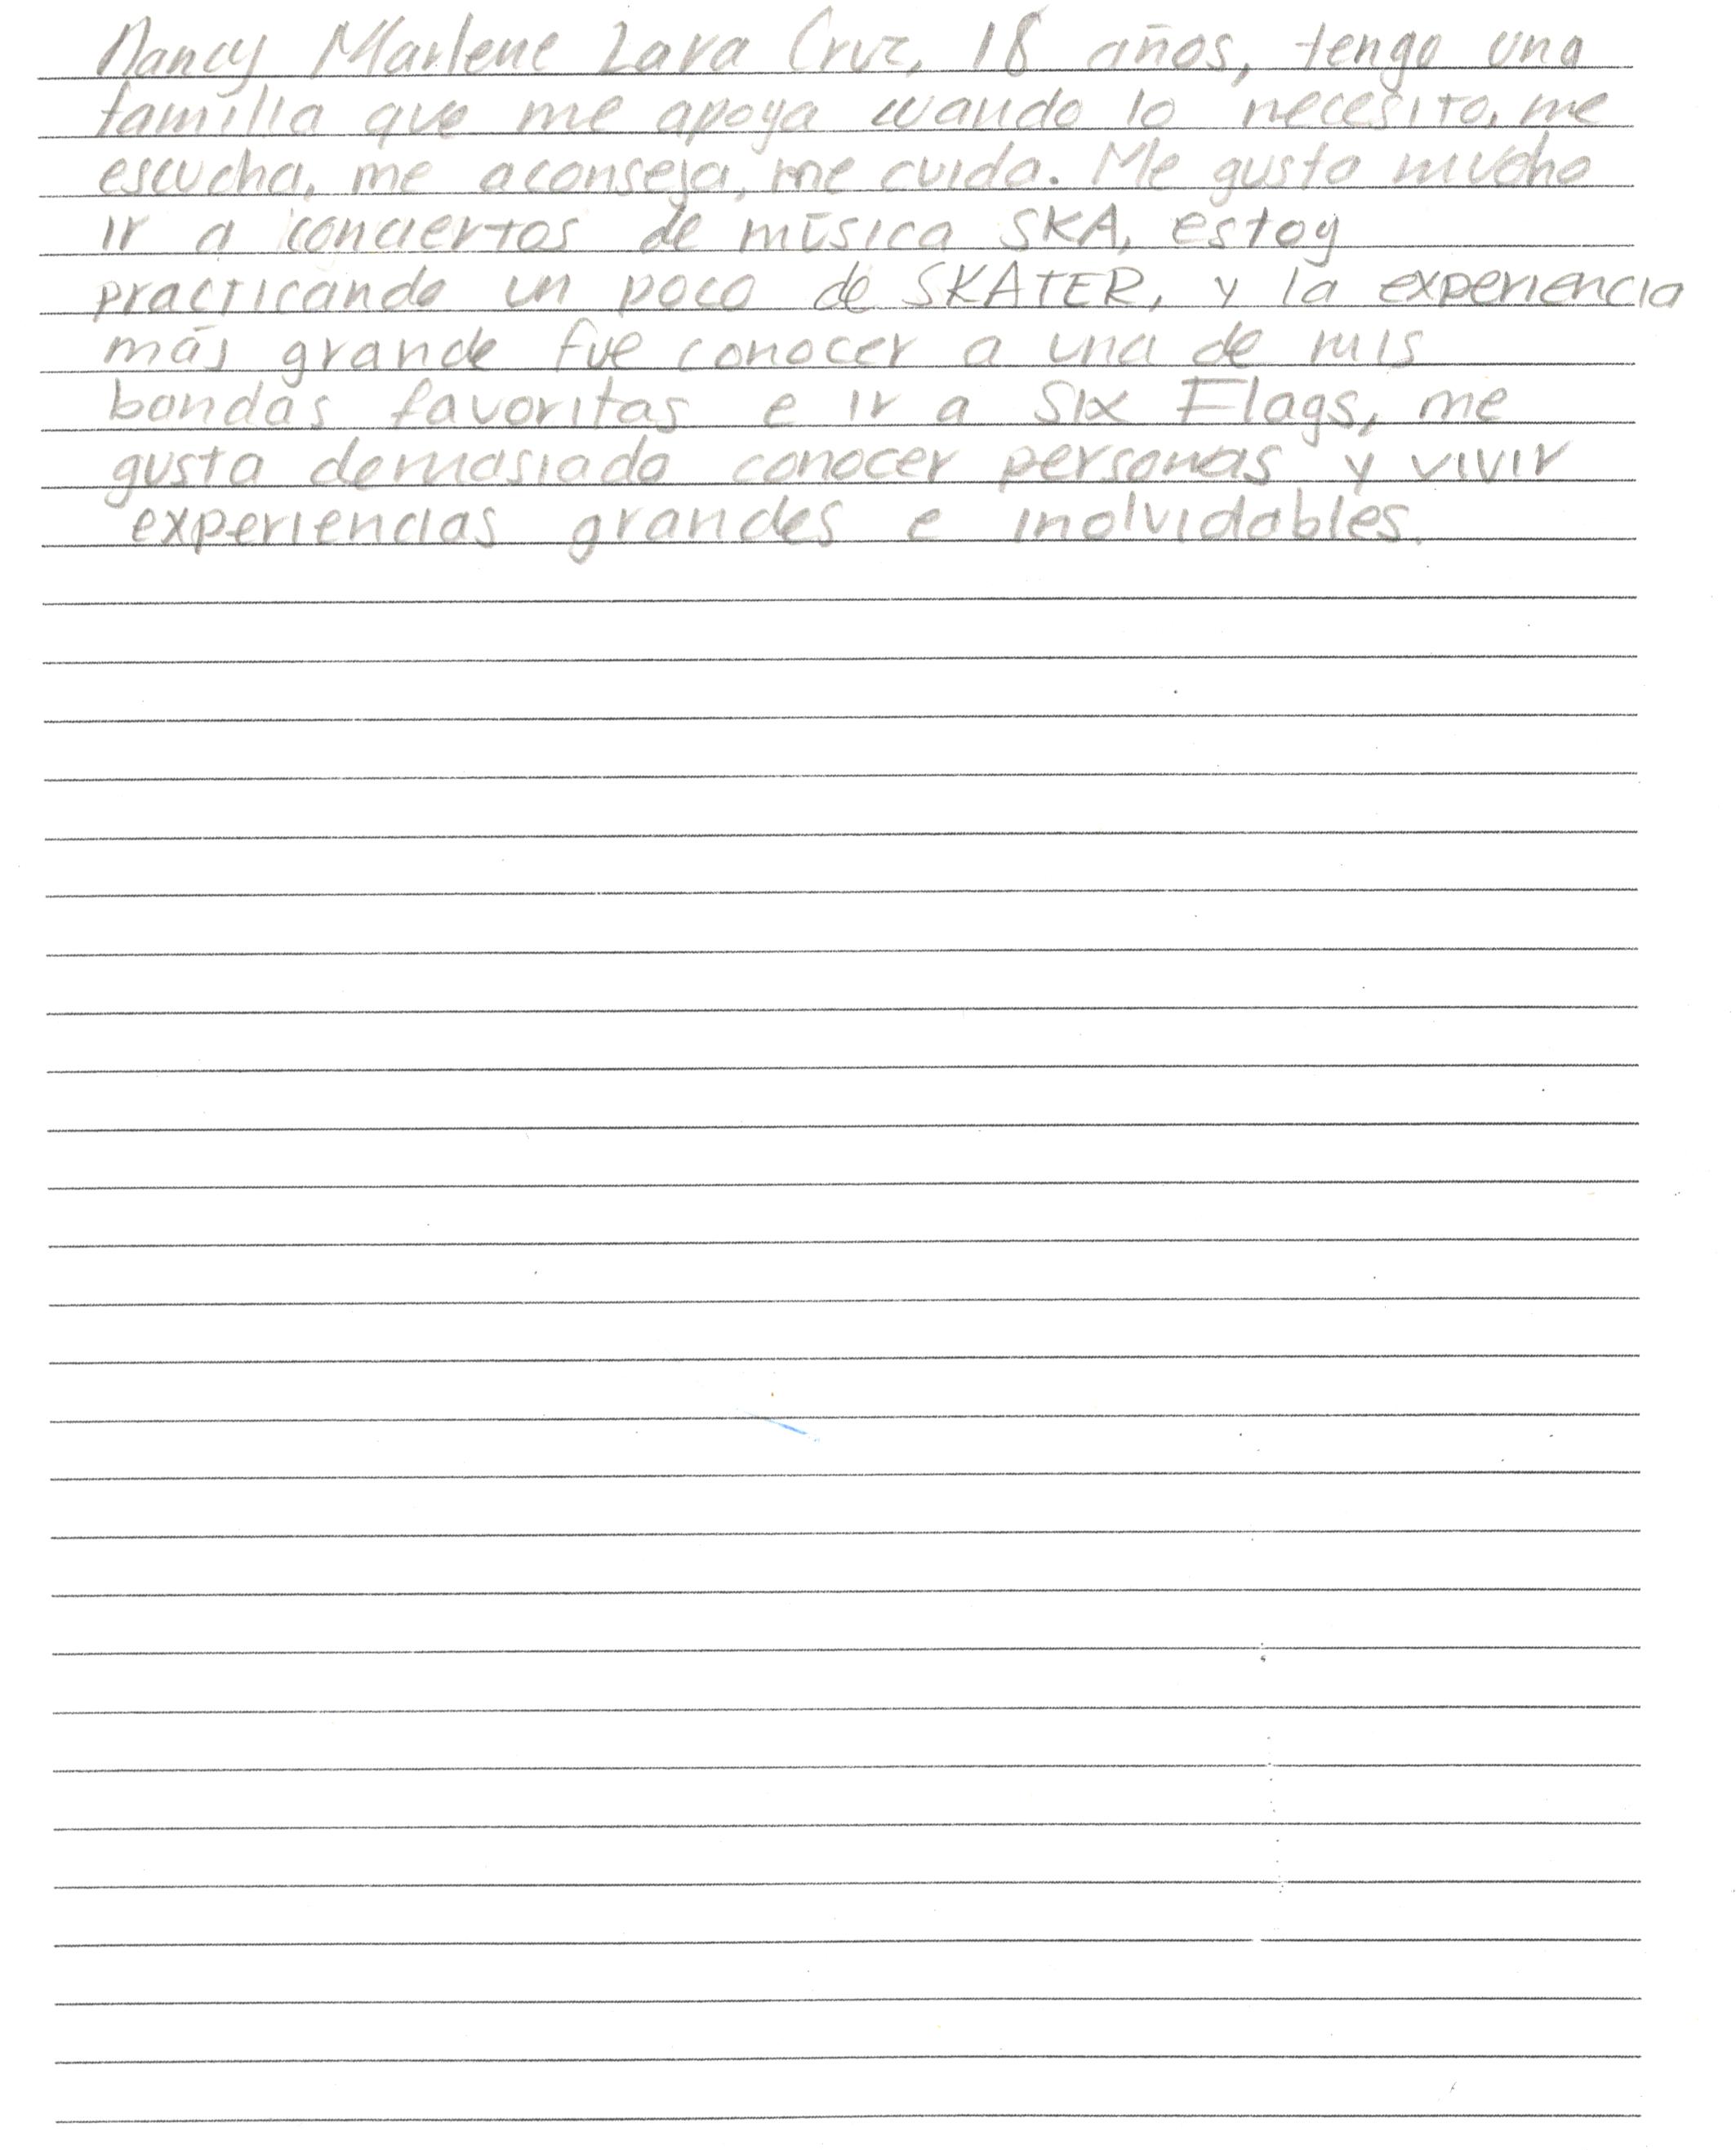 Nancy Marlene Lara Cruz, 18 años, tengo una
familia que me apoya cuando lo necesito, me
escucha, me aconseja, me cuida. Me gusta mucho
ir a conciertos de música SKA, estoy
practicando un poco de SKATER, y la experiencia
más grande fue conocer a una de mis
bandas favoritas e ir a Six Flags, me
gusta demasiado conocer personas y vivir
experiencias grandes e inolvidables.